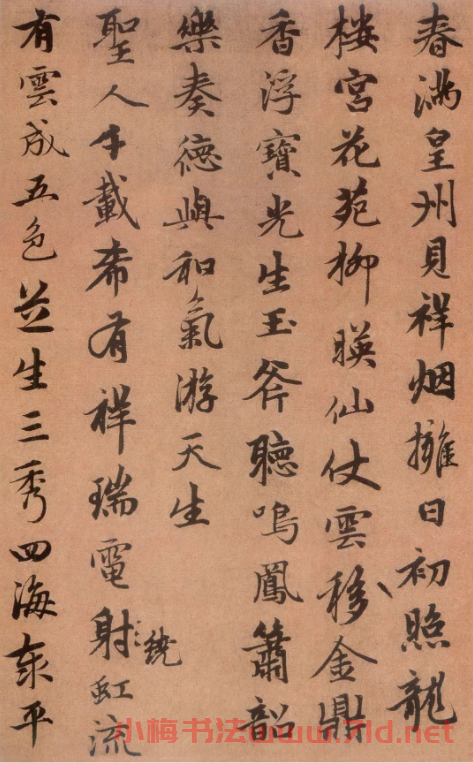 春滿皇州見祥烟擁日初照龍
楼宮花苑柳暎仙仗雲移金鼎
香浮寶光生玉斧聽鳴鳳簫韶
樂奏德與和氣游天生
聖人千載希有祥瑞電射虹流
繞
有雲成五色芝生三秀四海泰平
小梅书法www.7ld.net